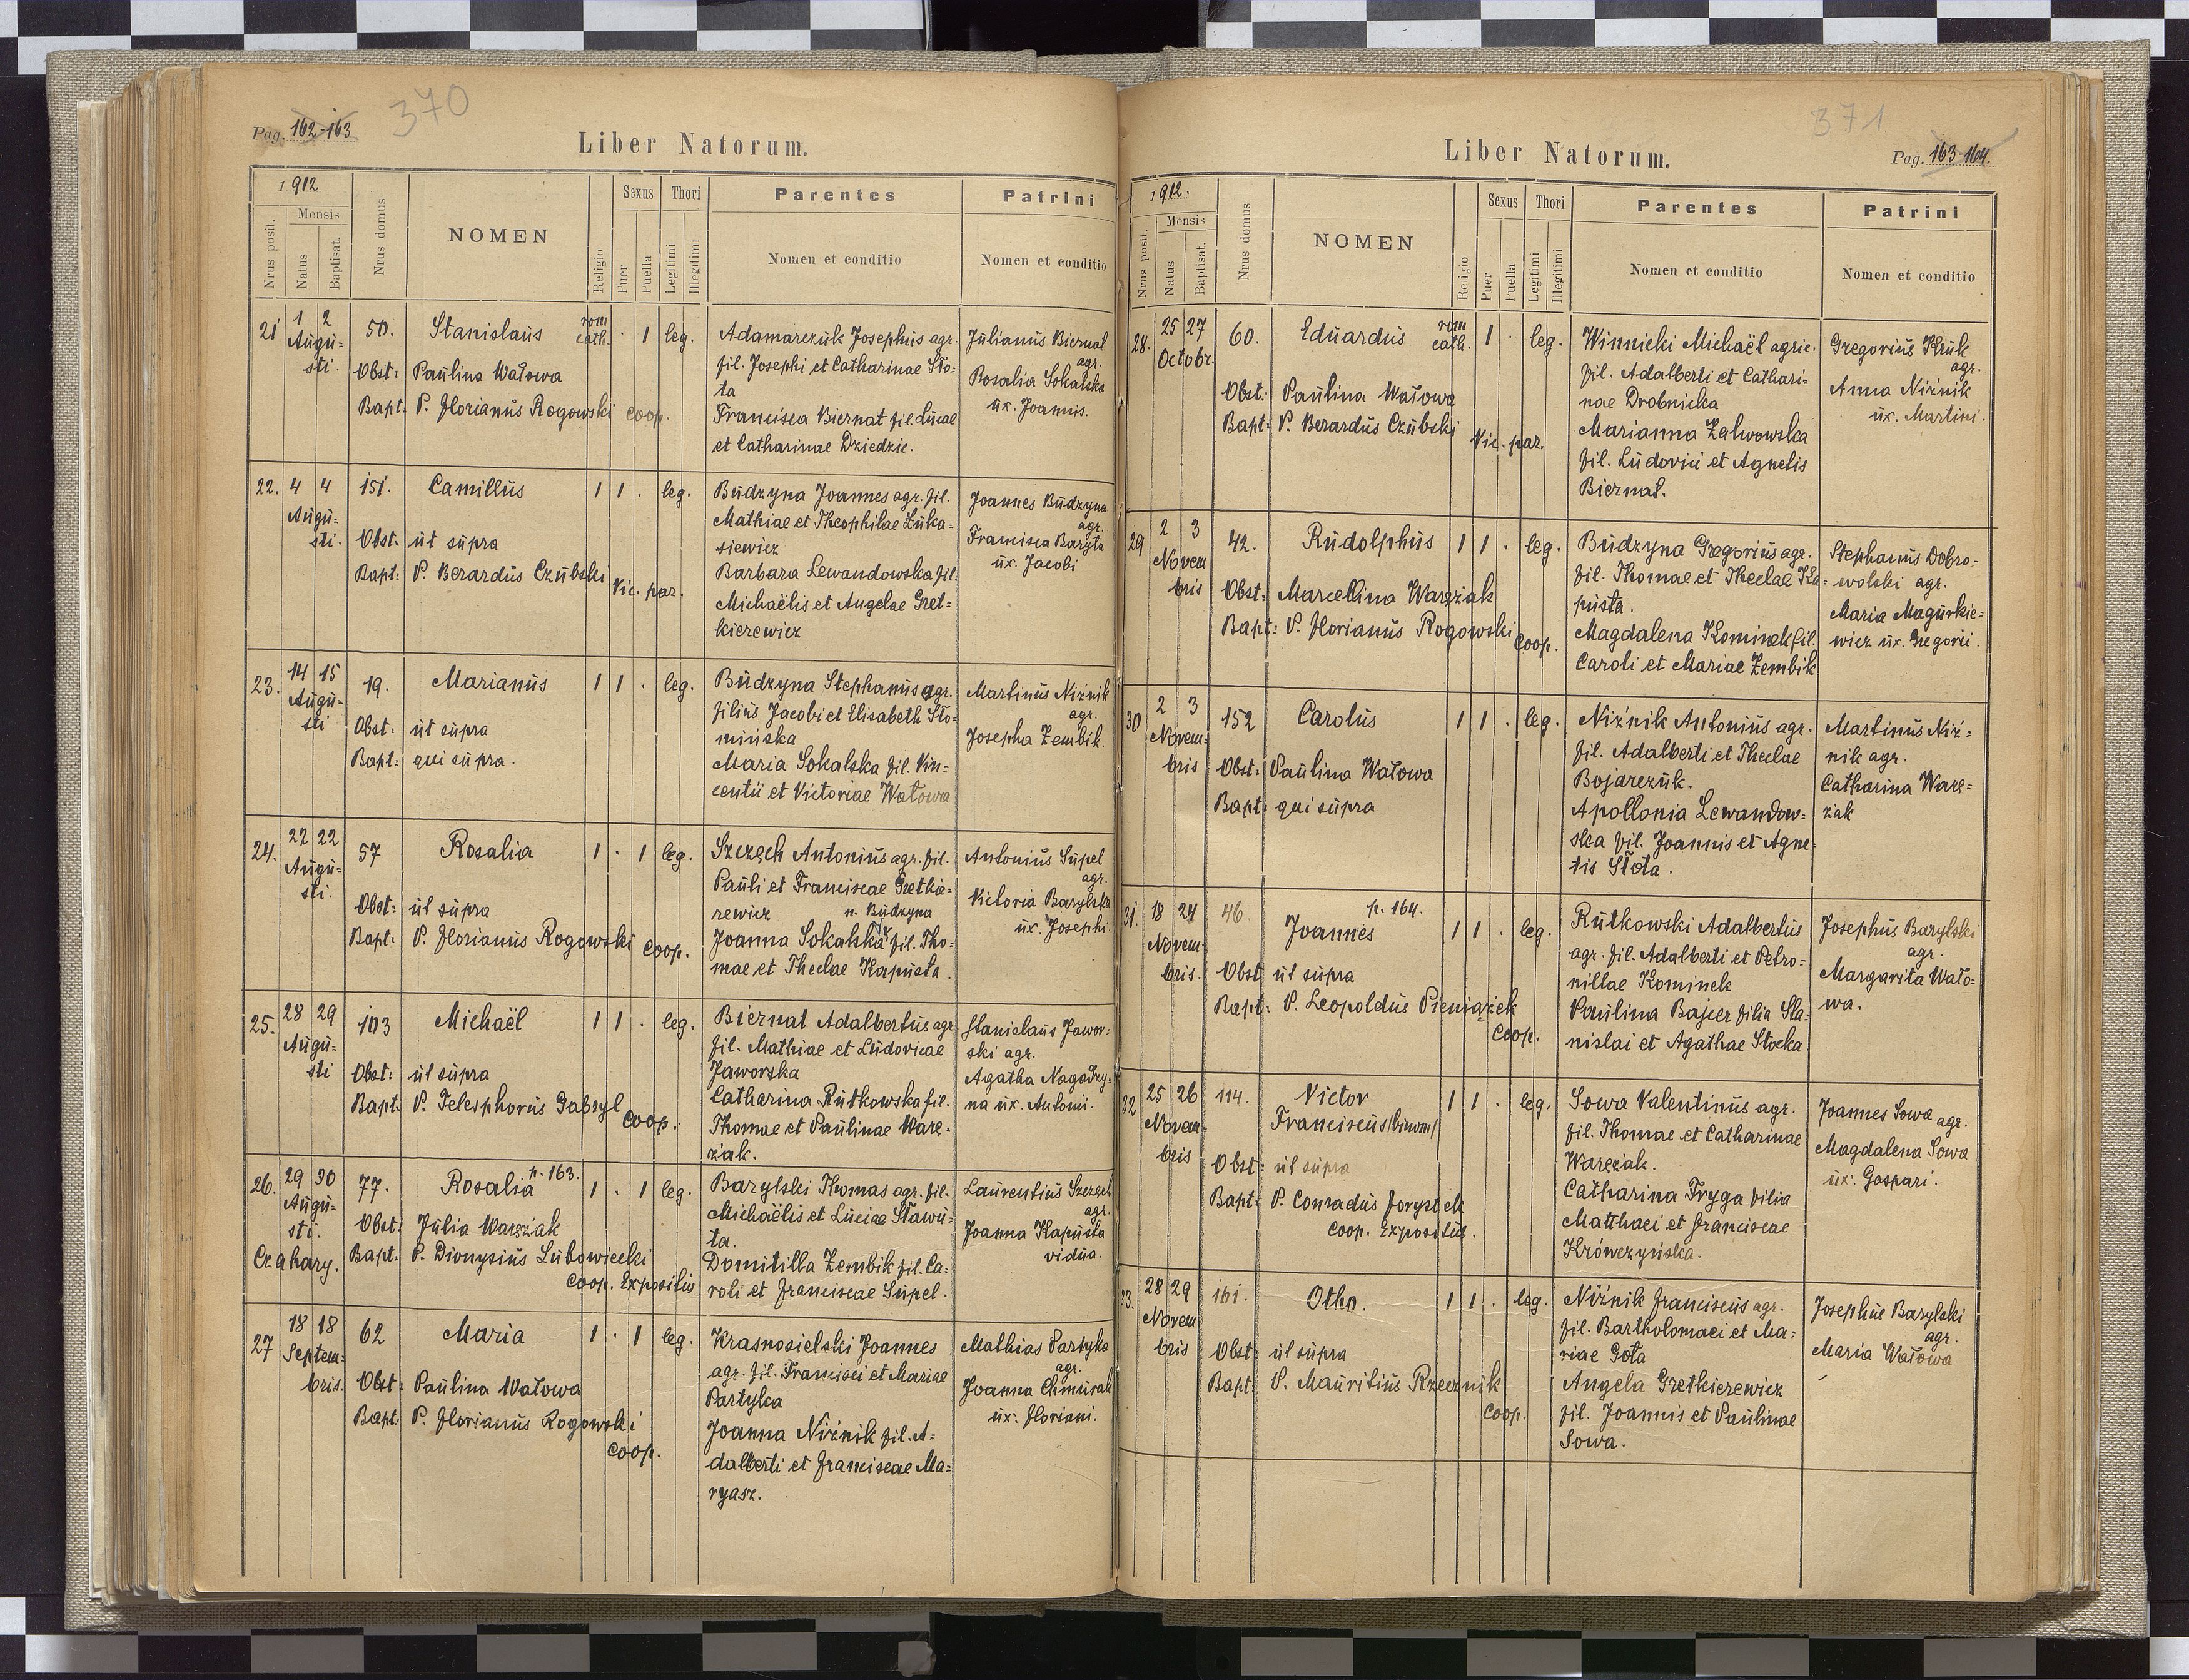 370
Pag. 162-163
Liber Natorum.
1912
Nrus posit.
Mensis
Natus
Baptisat.
Nrus domus
NOMEN
Religio
Sexus
Puer
Puella
Thori
Legitimi
Illegitimi
Parentes
Nomen et conditio
Patrini
Nomen et conditio
21 1 2 50. Stanislaus rom cath. . 1 leg.
Augu-
sti.
Obst: Paulina Watowa
Bapt. P. Florianus Rogowski coop.
Adamarczuk Josephus agr.
fil. Josephi et Catharinae Sło-
ta
Francisca Biernat fil. Lucae
et Catharinae Dziedzic.
Julianus Biernat
agr.
Rosalia Sokalska
ux. Joannis.
22. 4 4 151. Camillus 1 1 . leg.
Augu-
sti.
Obst. ut supra
Bapt: P. Berardus Czubski Vic. par.
Budzyna Joannes agr. fil.
Mathiae et Theophilae Łuka-
siewicz
Barbara Lewandowska fil.
Michaëlis et Angelae Gret-
kierewicz
Joannes Budzyna
agr.
Francisca Baryła
ux. Jacobi
23. 14 15 19. Marianus 1 1 . leg.
Augu-
sti
Obst: ut supra
Bapt: qui supra.
Budzyna Stephanus agr.
filius Jacobi et Elisabeth Sło-
mińska
Maria Sokalska fil. Vin-
centii et Victoriae Wałowa
Martinus Niżnik
agr.
Josepha Zembik.
24. 22 22 57 Rosalia 1 . 1 leg.
Augu-
sti.
Obst: ut supra
Bapt: P. Florianus Rogowski coop.
Szezech Antonius agr. fil.
Pauli et Franciscae Gretkie-
rewicz n. Budzyna
Joanna Sokalska fil. Tho-
mae et Theclae Kapusta.
Antonius Supel
agr.
Victoria Barylska
ux. Josephi
25. 28 29 103 Michaël 1 1 . leg.
Augu-
sti
Obst: ut supra
Bapt. P. Telesphorus Gabryl coop.
Biernat Adalbertus agr.
fil. Mathiae et Ludovicae
Jaworska
Catharina Rutkowska fil.
Thomae et Paulinae Warę-
żak.
Stanislaus Jawor-
ski agr.
Agatha Nagodzy-
na ux. Antonii.
26. 29 30 77. Rosalia p. 163. 1 . 1 leg.
Augu-
sti.
Czahary.
Obst: Julia Waręziak
Bapt: P. Dionysius Lubowiecki
coop. Expositus
Barylski Thomas agr. fil.
Michaëlis et Luciae Sławu-
ta.
Domitilla Zembik fil. Ca-
roli et Franciscae Supel.
Laurentius Szezech
agr.
Joanna Kapusta
vidua.
27 18 18 62 Maria 1 . 1 leg.
Septem-
bris.
Obst: Paulina Wałowa
Bapt. P. Florianus Rogowski
coop.
Krasnosielski Joannes
agr. fil. Francisci et Mariae
Partyka
Joanna Niżnik fil. A-
dalberti et Franciscae Ma-
ryasz.
Mathias Partyka
agr.
Joanna Chmurak
ux. Floriani.
371
Liber Natorum.
Pag. 163-164.
1912.
Nrus posit.
Mensis
Natus
Baptisat.
Nrus domus
NOMEN
Religio
Sexus
Puer
Puella
Thori
Legitimi
Illegitimi
Parentes
Nomen et conditio
Patrini
Nomen et conditio
28. 25 27 60. Eduardus rom cath. 1 . leg.
Octobr.
Obst: Paulina Wałowa
Bapt: P. Berardus Czubski Vic. par.
Winnicki Michaël agric.
fil. Adalberti et Cathari-
nae Drobnicka
Marianna Zalwowska
fil. Ludovici et Agnetis
Biernat.
Gregorius Kruk
agr.
Anna Niżnik
ux. Martini.
29 2 3 42. Rudolphus 1 1 . leg.
Novem
bris
Obst: Marcellina Waręziak
Bapt: P. Florianus Rogowski coop.
Budzyna Gregorius agr.
fil. Thomae et Theclae Ka-
pusta.
Magdalena Kominek fil.
Caroli et Mariae Zembik
Stephanus Dobro-
wolski agr.
Maria Magurkie-
wicz ux. Gregorii.
30 2 3 152 Carolus 1 1 . leg.
Novem-
bris
Obst: Paulina Wałowa
Bapt: qui supra
Niżnik Antonius agr.
fil. Adalberti et Theclae
Bojarczuk.
Apollonia Lewandow-
ska fil. Joannis et Agne-
tis Słota.
Martinus Niż-
nik agr.
Catharina Warę-
żak
31. 18 24 46. Joannes p. 164. 1 1 . leg.
Novem-
bris.
Obst ut supra
Bapt: P. Leopoldus Pieniążek
coop.
Rutkowski Adalbertus
agr. fil. Adalberti et Petro-
nillae Kominek
Paulina Bajcer filia Sta-
nislai et Agathae Stocka.
Josephus Barylski
agr.
Margarita Wało-
wa.
32 25 26 114. Victor 1 1 . leg.
Novem-
bris
Franciscus /binom/
Obst: ut supra
Bapt: P. Conradus Forystek
coop. Expositus.
Sowa Valentinus agr.
fil. Thomae et Catharinae
Waręziak.
Catharina Fryga filia
Matthaei et Franciscae
Krówczyńska.
Joannes Sowa agr.
Magdalena Sowa
ux. Gaspari.
33. 28 29 161. Otho. 1 1 . leg.
Novem
bris
Obst: ut supra
Bapt: P. Mauritius Rzecznik
coop.
Niżnik Franciscus agr.
fil. Bartholomaei et Ma-
riae Gota
Angela Gretkierewicz
fil. Joannis et Paulinae
Sowa.
Josephus Barylski
agr.
Maria Wałowa